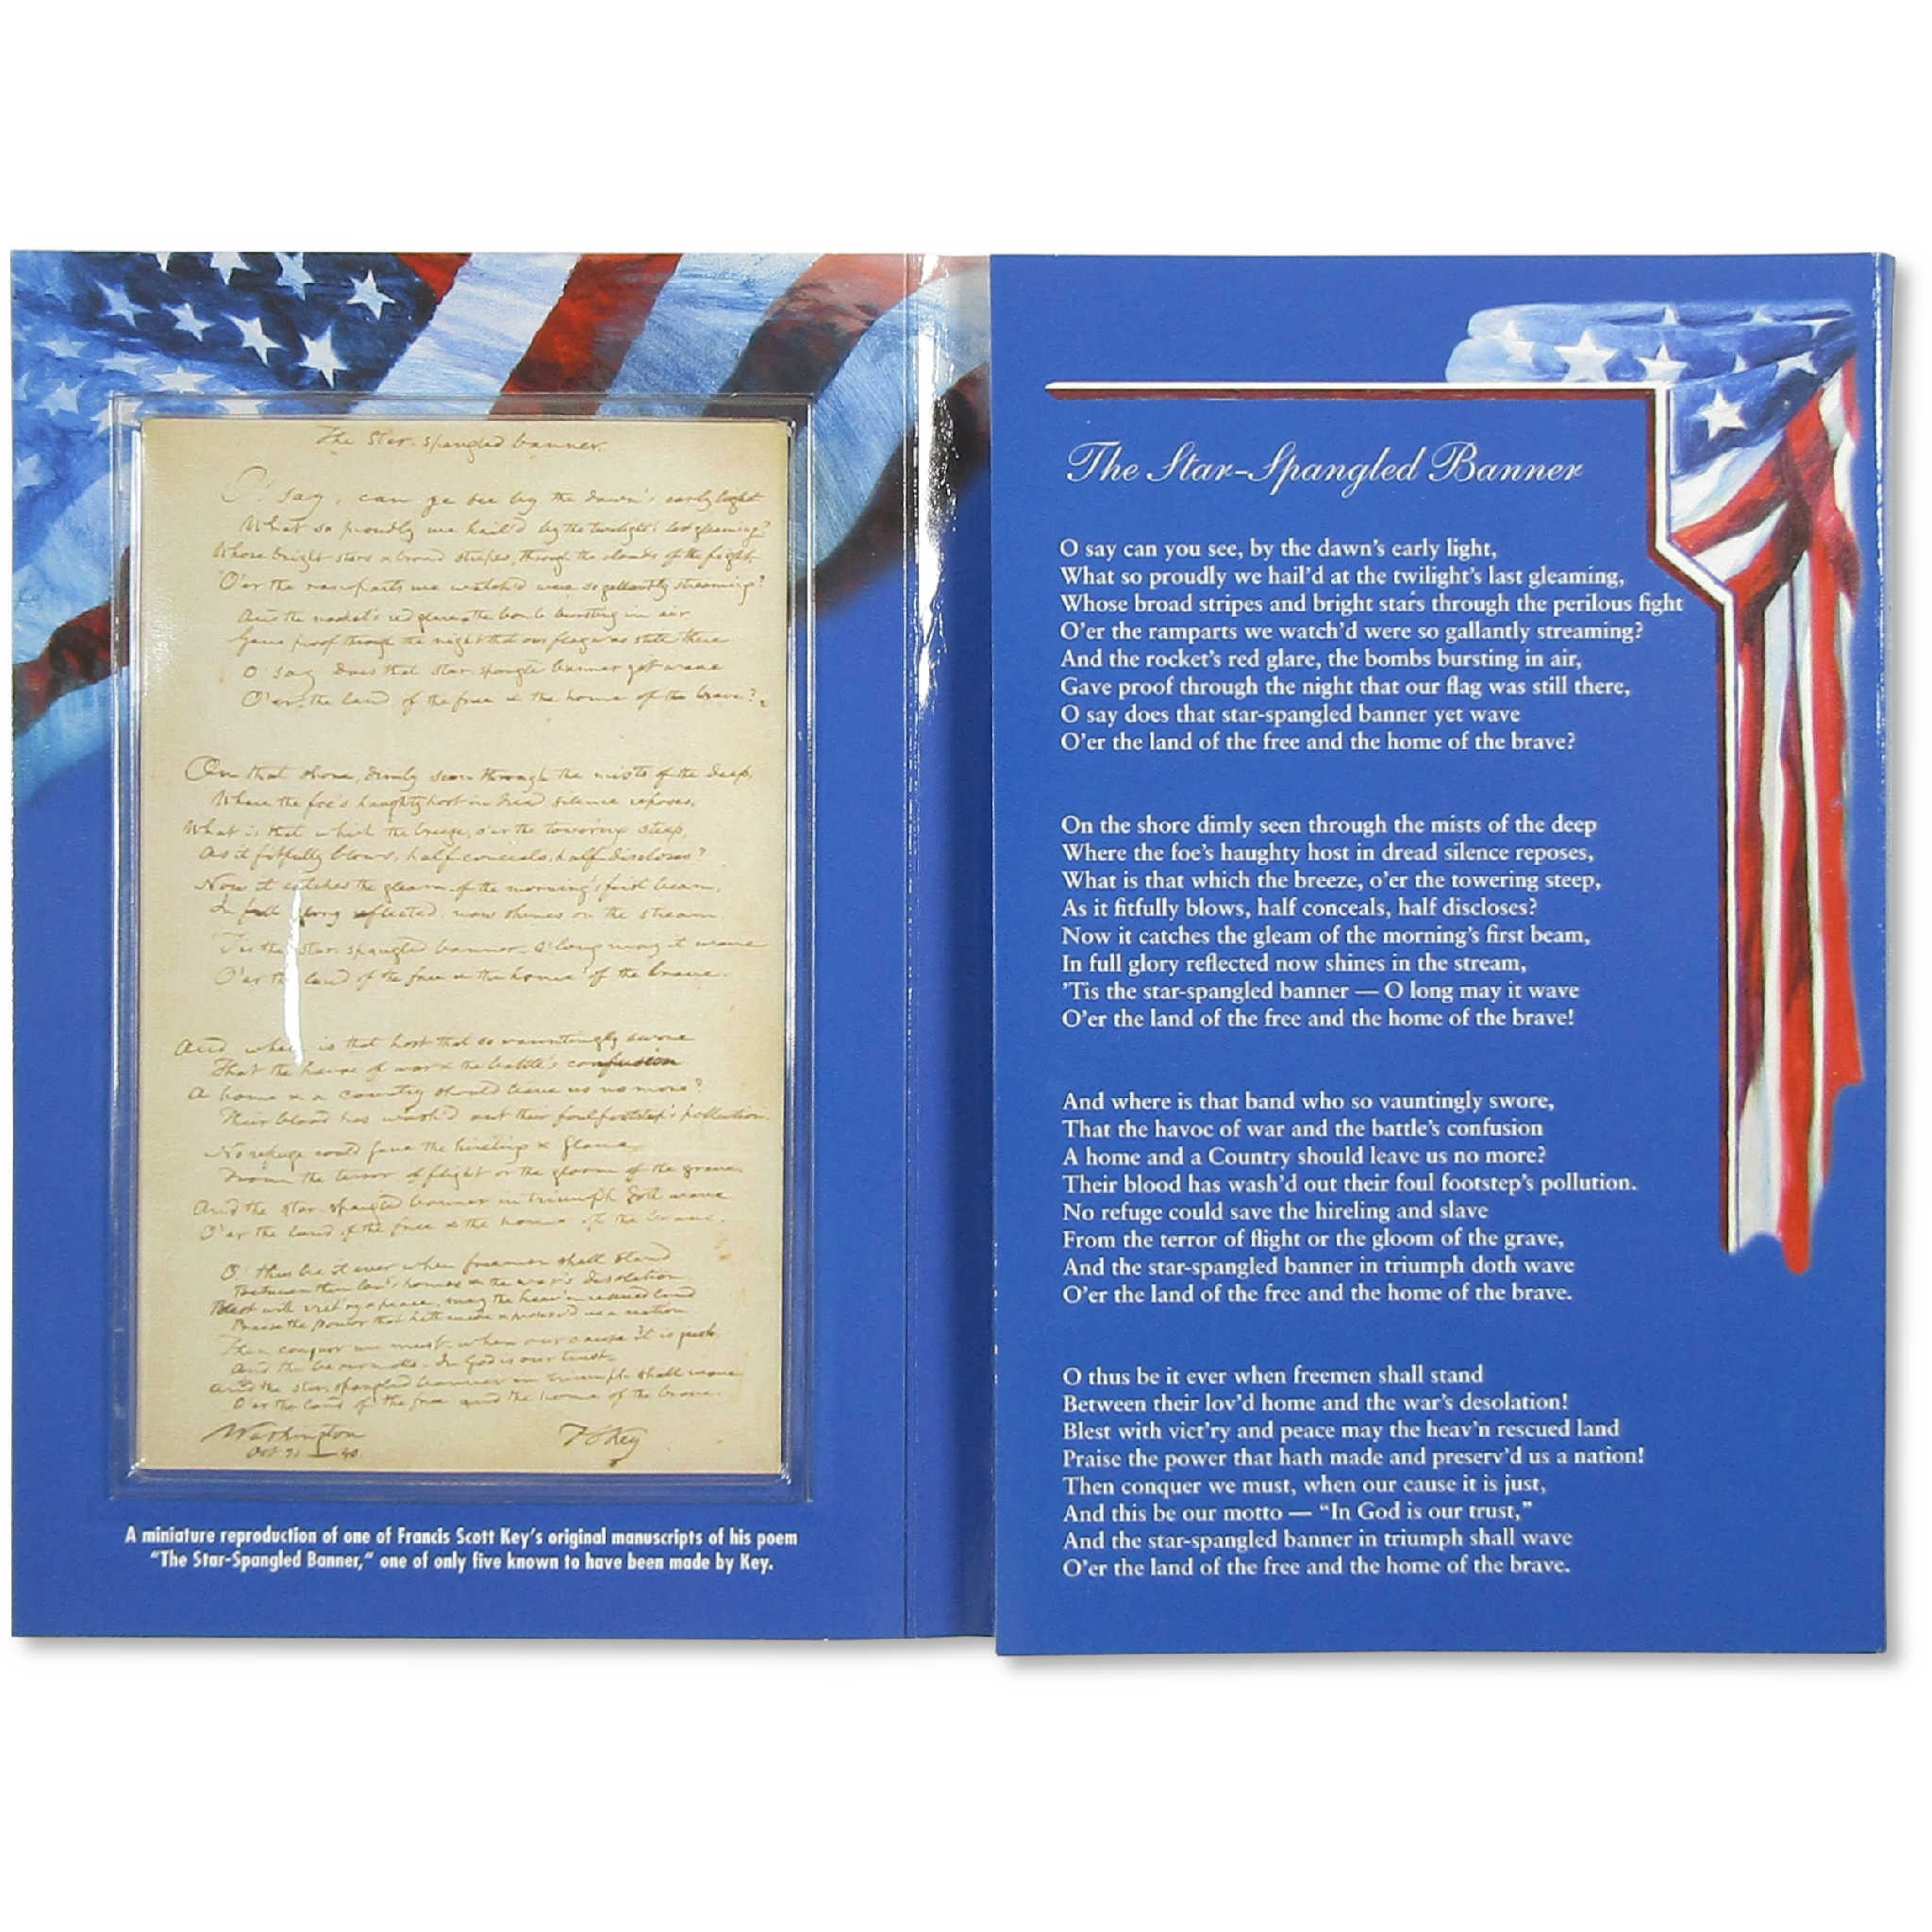 The Star-spangled banner.
O! say, can ye see by the dawn's early light
What so proudly we hail'd by the twilight's last gleaming?
Whose bright stars & broad stripes, through the clouds of the fight,
O'er the ramparts we watch'd were so gallantly streaming?
And the rocket's red glare, the bomb bursting in air
Gave proof through the night that our flag was still there
O! say does that star-spangled banner yet wave
O'er the land of the free & the home of the brave?
On that shore, dimly seen through the mists of the deep,
Where the foe's haughty host in dread silence reposes,
What is that which the breeze, o'er the towering steep,
As it fitfully blows, half conceals, half discloses?
Now it catches the gleam of the morning's first beam,
In full glory reflected now shines on the stream
'Tis the star-spangled banner - O! long may it wave
O'er the land of the free & the home of the brave.
And where is that host that so vauntingly swore
That the havoc of war & the battle's confusion
A home & a country should leave us no more?
Their blood has wash'd out their foul footstep's pollution.
No refuge could save the hireling & slave
From the terror of flight or the gloom of the grave
And the star-spangled banner in triumph doth wave
O'er the land of the free & the home of the brave.
O! thus be it ever when freemen shall stand
Between their lov'd homes & the war's desolation
Blest with vict'ry & peace, may the heav'n rescued land
Praise the power that hath made & preserv'd us a nation
Then conquer we must, when our cause it is just,
And this be our motto - In God is our trust
And the star-spangled banner in triumph shall wave
O'er the land of the free and the home of the brave.
Washington
Oct 21 - 40
F S Key
A miniature reproduction of one of Francis Scott Key's original manuscripts of his poem
"The Star-Spangled Banner," one of only five known to have been made by Key.
The Star-Spangled Banner
O say can you see, by the dawn's early light,
What so proudly we hail'd at the twilight's last gleaming,
Whose broad stripes and bright stars through the perilous fight
O'er the ramparts we watch'd were so gallantly streaming?
And the rocket's red glare, the bombs bursting in air,
Gave proof through the night that our flag was still there,
O say does that star-spangled banner yet wave
O'er the land of the free and the home of the brave?
On the shore dimly seen through the mists of the deep
Where the foe's haughty host in dread silence reposes,
What is that which the breeze, o'er the towering steep,
As it fitfully blows, half conceals, half discloses?
Now it catches the gleam of the morning's first beam,
In full glory reflected now shines in the stream,
'Tis the star-spangled banner — O long may it wave
O'er the land of the free and the home of the brave!
And where is that band who so vauntingly swore,
That the havoc of war and the battle's confusion
A home and a Country should leave us no more?
Their blood has wash'd out their foul footstep's pollution.
No refuge could save the hireling and slave
From the terror of flight or the gloom of the grave,
And the star-spangled banner in triumph doth wave
O'er the land of the free and the home of the brave.
O thus be it ever when freemen shall stand
Between their lov'd home and the war's desolation!
Blest with vict'ry and peace may the heav'n rescued land
Praise the power that hath made and preserv'd us a nation!
Then conquer we must, when our cause it is just,
And this be our motto — "In God is our trust,"
And the star-spangled banner in triumph shall wave
O'er the land of the free and the home of the brave.